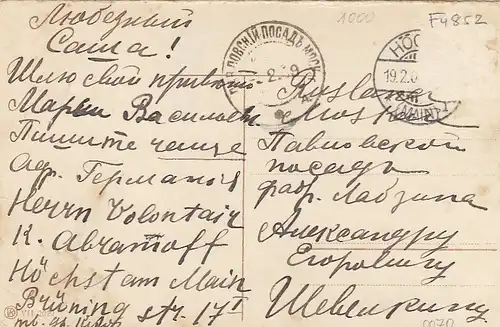 Любезный
Саша!
Шлю свой привет
Марьи Васильевн
Пишите чаще
Адр. Германія
Herrn Volontair
K. Abramoff
Höchst am Main
Brüning str. 17 I
1000
F4852
ПАВЛОВСКІЙ ПОСАДЪ МОСК
HÖC
19.2.0
(MAIN)
Russland
Moskau
Павловской
посадъ
фабр. Лабзина
Александру
Егоровичу
Шевелкину